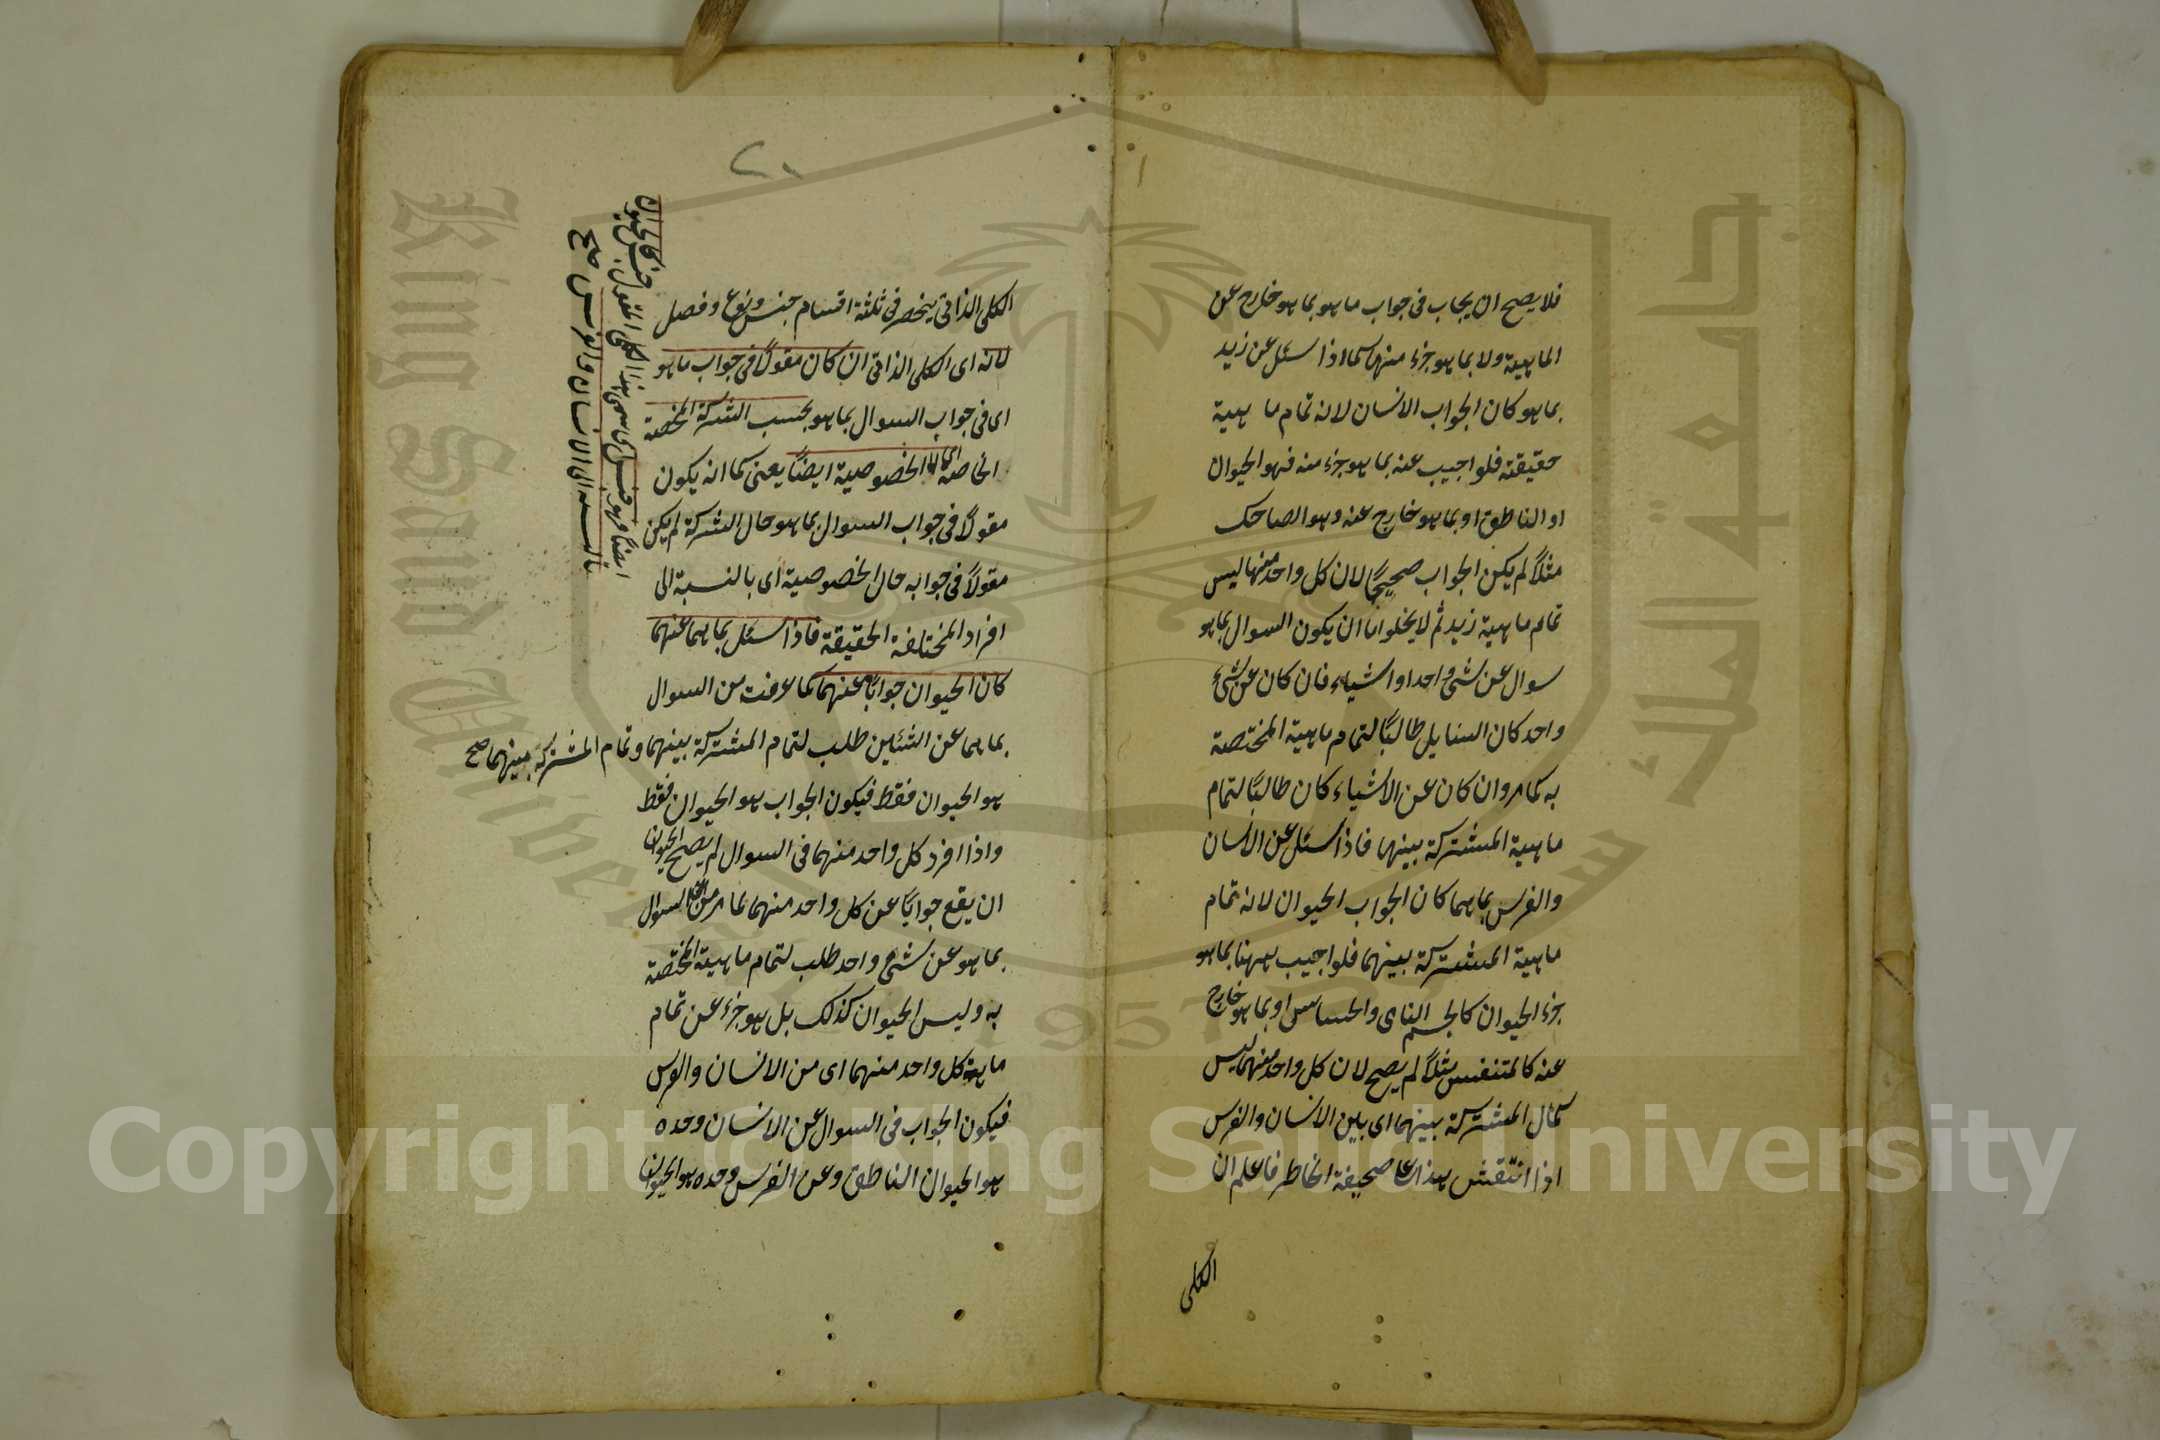 فلا يصح ان يجاب فى جواب ما هو بما هو خارج عن
الماهية ولا بما هو جزء منها كما اذا سئل عن زيد
بما هو كان الجواب الانسان لانه تمام ما هية
حقيقته فلو اجيب عنه بما هو جزء منه فهو الحيوان
او الناطق او بما هو خارج عنه وهو الضاحك
مثلاً لم يكن الجواب صحيحًا لان كل واحد منها ليس
تمام ماهية زيد ثم لا يخلو اما ان يكون السوال بما هو
سوال عن شئ واحد او اشياء فان كان عن شئ
واحد كان السايل طالبًا لتمام ماهية المختصة
به كما مر وان كان عن الاشياء كان طالبًا لتمام
ماهية المشتركة بينها فاذا سئل عن الانسان
والفرس بما هما كان الجواب الحيوان لانه تمام
ماهية المشتركة بينهما فلو اجيب ههنا بما هو
جزء الحيوان كالجسم النامى والحساس او بما هو خارج
عنه كالمتنفس مثلاً لم يصح لان كل واحد منهما ليس
كمال المشتركة بينهما اى بين الانسان والفرس
اذا انتقش هذا على صحيفة الخاطر فاعلم ان
الكلى
٢٠
الكلى الذاتى ينحصر فى ثلثة اقسام جنس ونوع وفصل
لانه اى الكلى الذاتى ان كان مقولاً فى جواب ما هو
اى فى جواب السوال بما هو بحسب الشركة المحضة
الخاصة الخصوصية ايضًا يعنى كما انه يكون
مقولاً فى جواب السوال بما هو حال الشركة لم يكن
مقولاً فى جوابه حال الخصوصية اى بالنسبة الى
افراد المختلفة الحقيقة فاذا سئل بما هما عنهما
كان الحيوان جوابًا عنهما كما عرفت من السوال
بما هما عن الشئين طلب لتمام المشتركة بينهما وتمام المشتركة بينهما صح
هو الحيوان فقط فيكون الجواب هو الحيوان فقط
واذا افرد كل واحد منهما فى السوال لم يصح الحيوان
ان يقع جوابًا عن كل واحد منهما لما مر من ان السوال
بما هو عن شئ واحد طلب لتمام ماهية المختصة
به وليس الحيوان كذلك بل هو جزء عن تمام
ماهية كل واحد منهما اى من الانسان والفرس
فيكون الجواب فى السوال عن الانسان وحده
هو الحيوان الناطق وعن الفرس وحده هو الحيوان
كالحيوان
جنس الحيوان المقول الكلى هذا سمى اى جنس فهو ايضًا
بالنسبة الى الانسان والفرس صح
King Saud University
جامعة الملك سعود
1957
Copyright © King Saud University